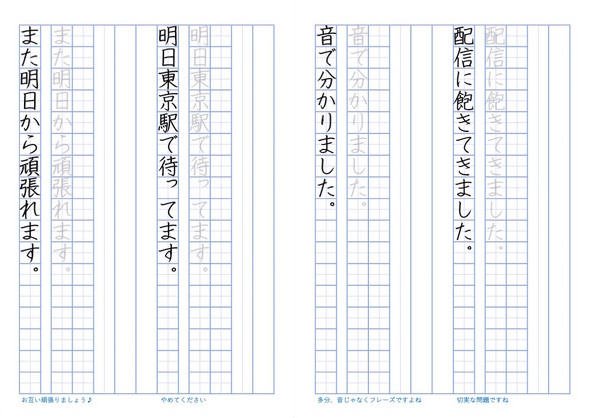 配信に飽きてきました。
配信に飽きてきました。
切実な問題ですね
音で分かりました。
音で分かりました。
多分、音じゃなくフレーズですよね
明日東京駅で待ってます。
明日東京駅で待ってます。
やめてください
また明日から頑張れます。
また明日から頑張れます。
お互い頑張りましょう♪